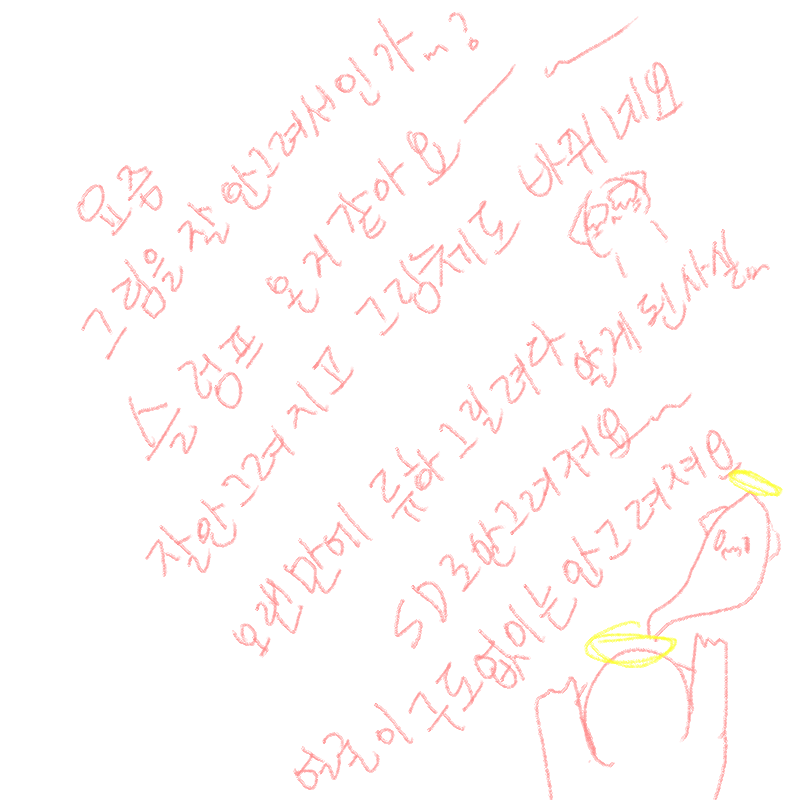 요즘
그림을 잘 안그려서인가...?
슬럼프 온거 같아요ㅡㅡ
잘안그려지고 그림체도 바뀌네요
오랜만에 류하 그릴려다 알게 된 사실...
SD로 안그려져요ㅡ
얼굴이 구도없이는 안그려져요